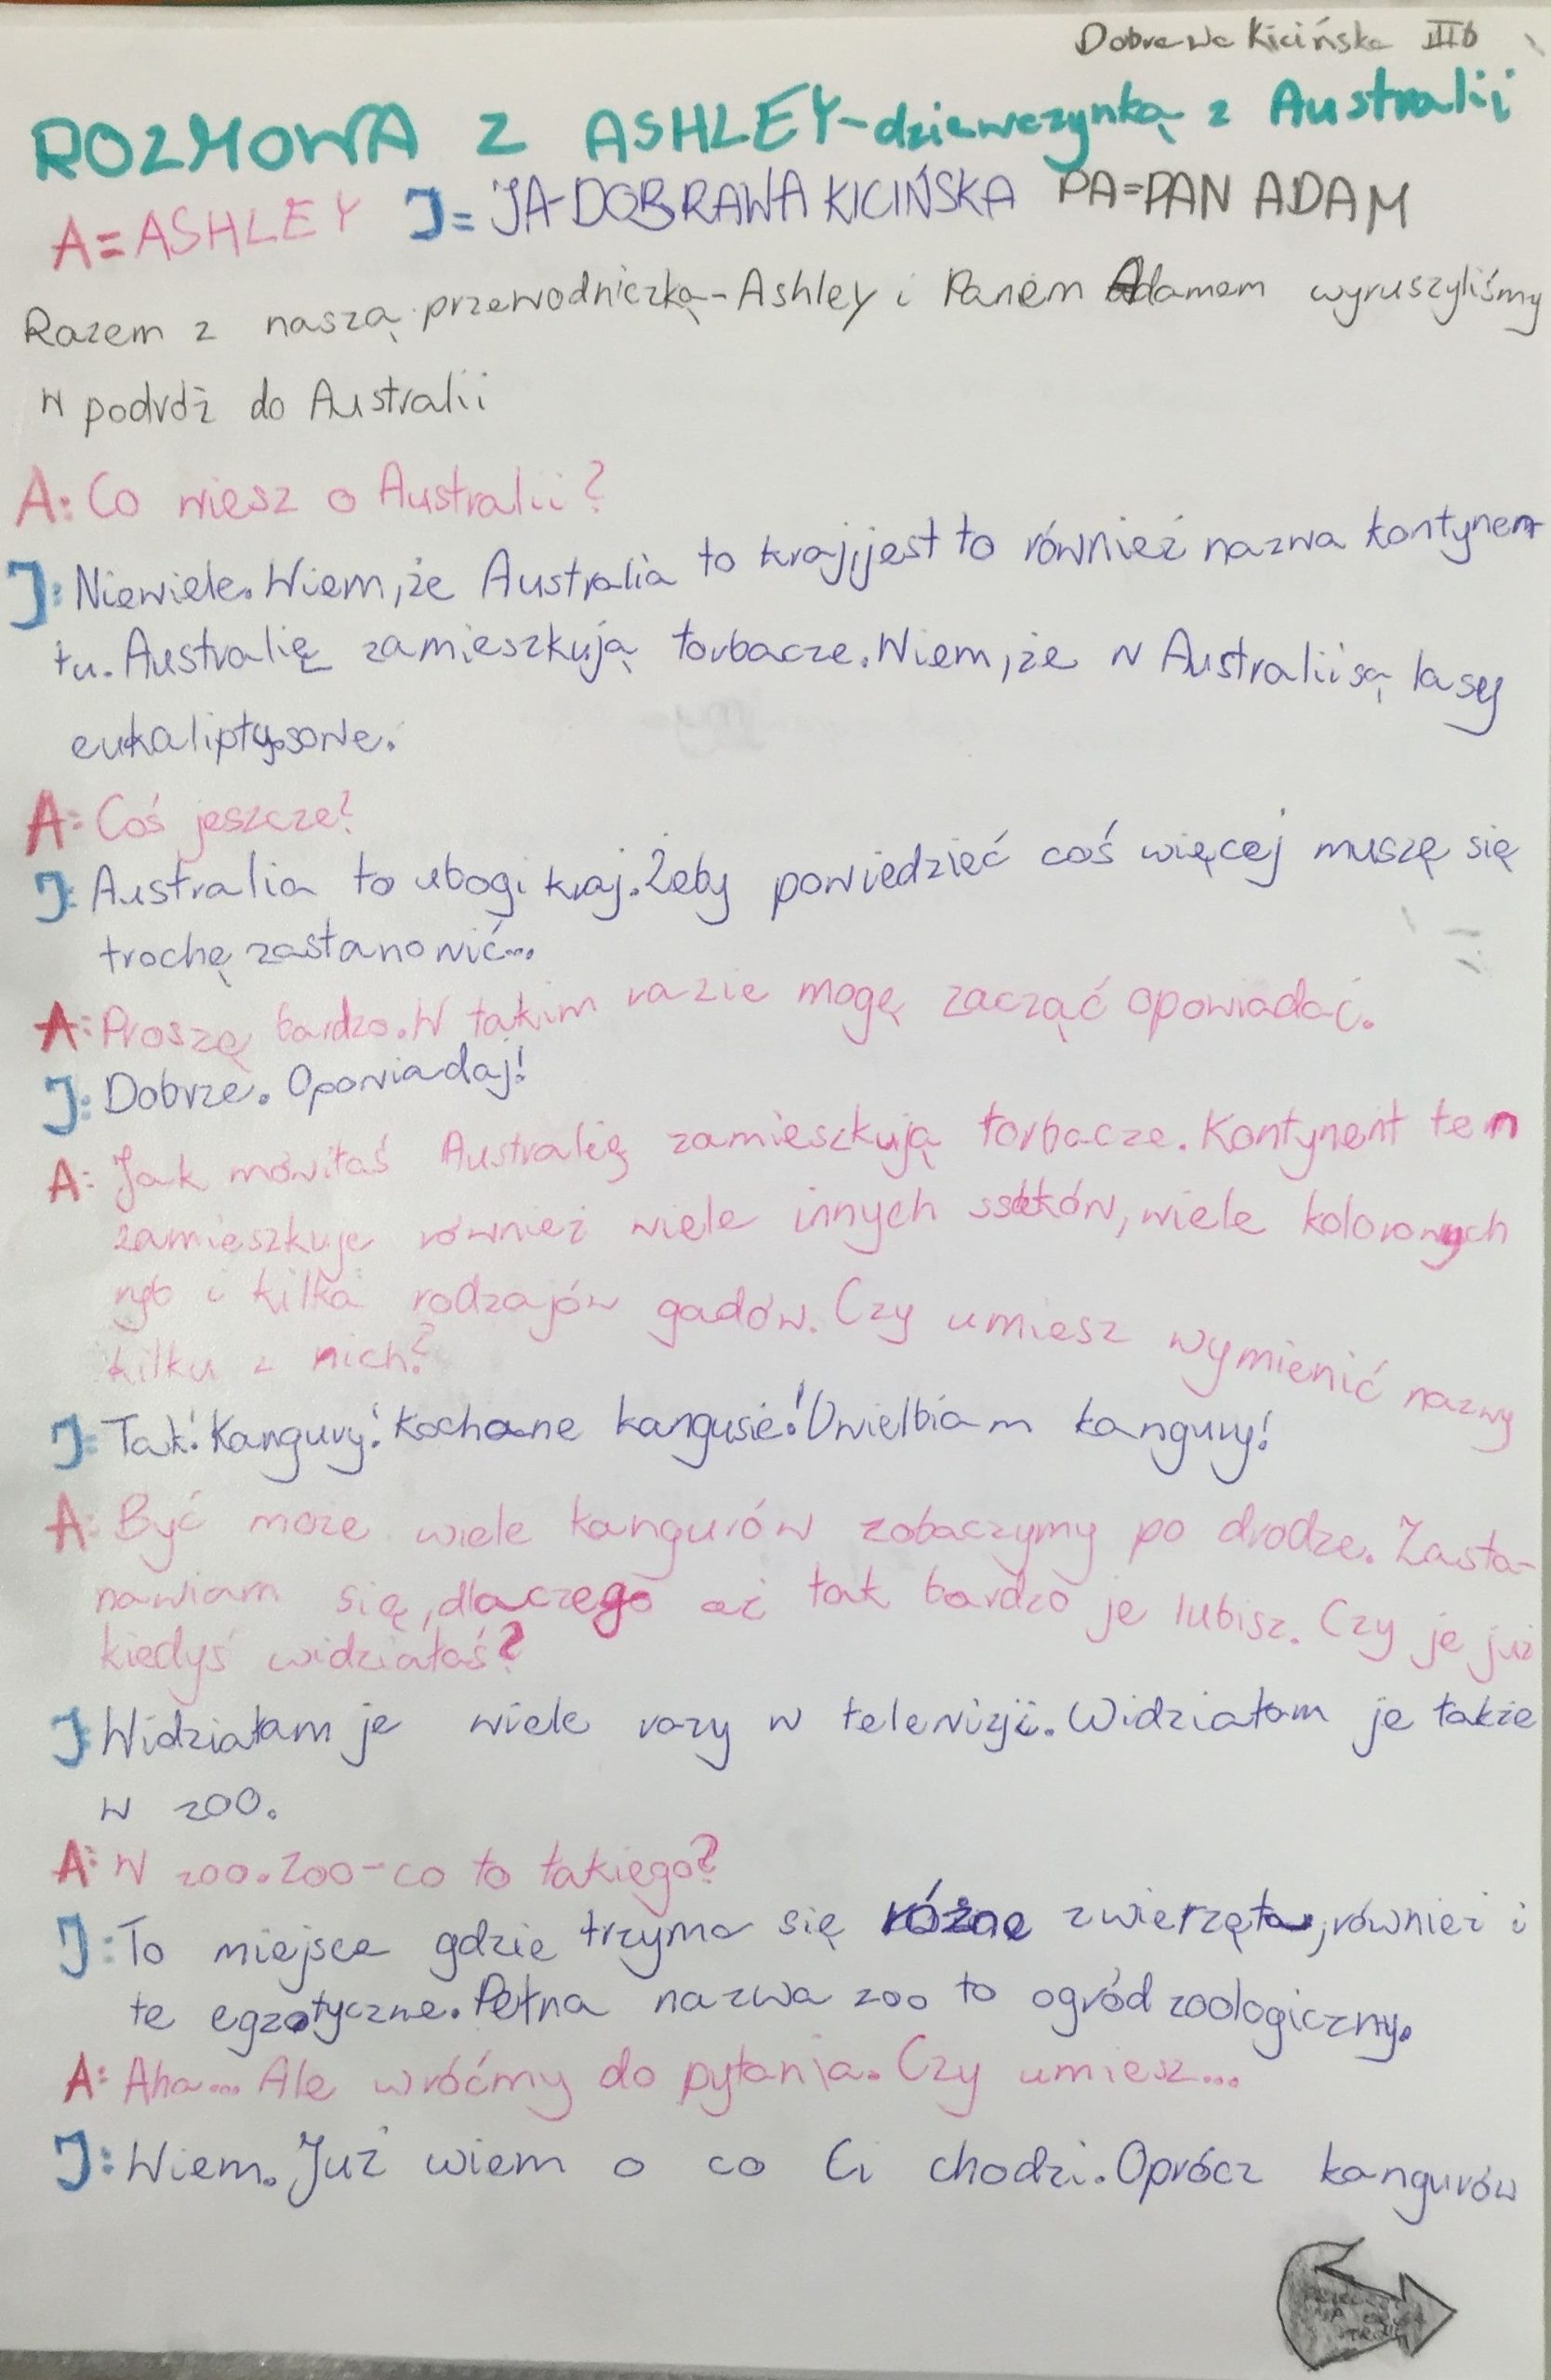 Dobrawa Kicińska IIIb
ROZMOWA Z ASHLEY-dziewczynką z Australii
A=ASHLEY J=JA-DOBRAWA KICIŃSKA PA=PAN ADAM
Razem z naszą przewodniczką-Ashley i Panem Adamem wyruszyliśmy
w podróż do Australii
A: Co wiesz o Australii?
J: Niewiele. Wiem, że Australia to kraj, jest to również nazwa kontynen
tu. Australię zamieszkują torbacze. Wiem, że w Australii są lasy
eukaliptysowe.
A: Coś jeszcze?
J: Australia to ubogi kraj. Żeby powiedzieć coś więcej muszę się
trochę zastanowić...
A: Proszę bardzo. W takim razie mogę zacząć opowiadać.
J: Dobrze. Opowiadaj!
A: Jak mówiłaś Australię zamieszkują torbacze. Kontynent ten
zamieszkuje również wiele innych ssaków, wiele kolorowych
ryb i kilka rodzajów gadów. Czy umiesz wymienić nazwy
kilku z nich?
J: Tak! Kangury! Kochane kangusie! Uwielbiam kangury!
A: Być może wiele kangurów zobaczymy po drodze. Zasta-
nawiam się, dlaczego aż tak bardzo je lubisz. Czy je już
kiedyś widziałaś?
J: Widziałam je wiele razy w telewizji. Widziałam je także
w zoo.
A: W zoo. Zoo-co to takiego?
J: To miejsce gdzie trzyma się różne zwierzęta, również i
te egzotyczne. Pełna nazwa zoo to ogród zoologiczny.
A: Aha... Ale wróćmy do pytania. Czy umiesz...
J: Wiem. Już wiem o co Ci chodzi. Oprócz kangurów